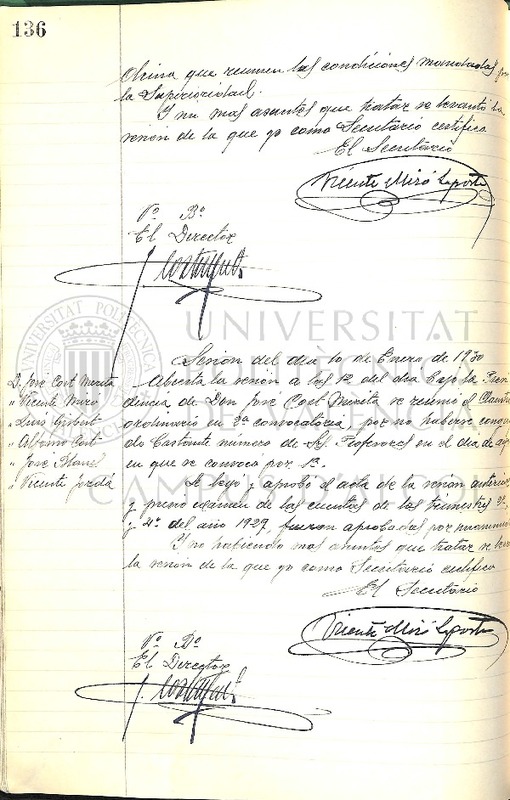 136
que reunen las condiciones
la Superioridad.
Y no mas asuntos que tratar se levantó la
sesion de la que yo como Secretario certifico
El Secretario
Vicente Miró Laporta
Vº Bº
El Director
UNIVERSITAT
POLITÈCNICA
DE VALÈNCIA
CAMPUS D'ALCOI
Sesion del dia 10 de Enero de 1930
D. Jose Cort Merita
" Vicente Miró
" Luis Gisbert
" Albino Cort
" Jose
" Vicente Jordá
Abierta la sesion a las 12 del dia bajo la Presi
dencia de Don Jose Cort Merita se reunió el Claustro
ordinario en 2ª convocatoria, por no haberse congrega
do bastante número de Sres Profesores en el dia de
en que se convocó por 1ª.
Se leyó y aprobó el acta de la sesion anterior
y previo examen de las cuentas de los trimestres 3º
y 4º del año 1929, fueron aprobadas por
Y no habiendo mas asuntos que tratar se levantó
la sesion de la que yo como Secretario certifico
El Secretario
Vicente Miró Laporta
Vº Bº
El Director